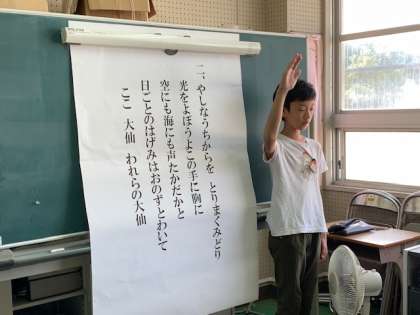 二、やしなうちからを とりまくみどり
光をよぼうよこの手に胸に
空にも海にも声たかだかと
日ごとのはげみはおのずとわいて
ここ 大仙 われらの大仙